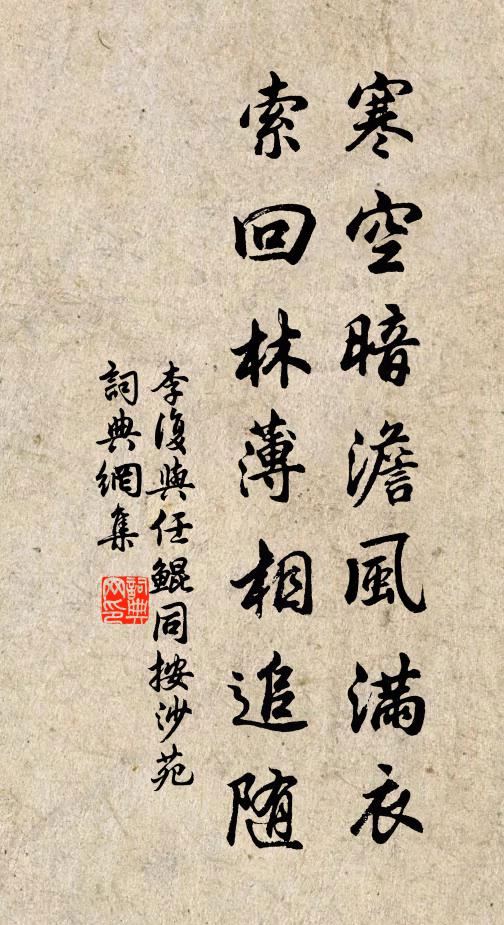 寒空暗澹風滿衣
索回林薄相追随
李復與任鯤同按沙苑
詞典網集
詞典網印